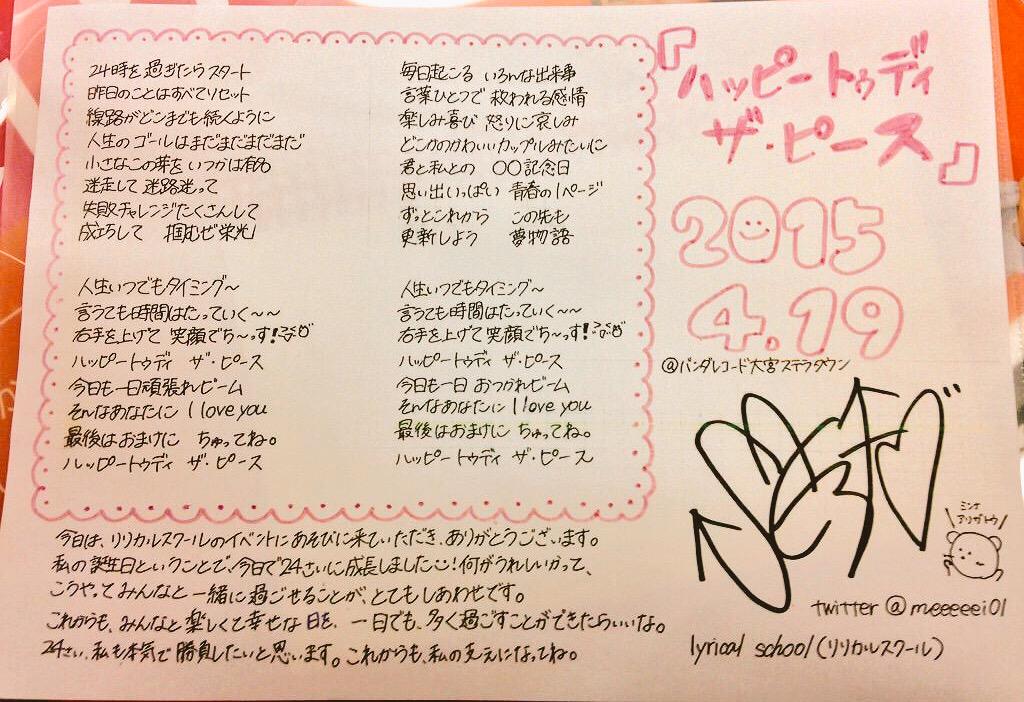 『ハッピートゥディ
ザ・ピース』
2015
4.19
@バンダレコード大宮ステラタウン
24時を過ぎたらスタート
昨日のことはすべてリセット
線路がどこまでも続くように
人生のゴールはまだまだまだまだ
小さなこの芽を いつかは有名
迷走して 迷路迷って
失敗チャレンジたくさんして
成功して 掴むぜ栄光!
人生いつでもタイミング〜
言うても時間はたっていく〜〜
右手を上げて 笑顔でち〜っす!
ハッピートゥディ ザ・ピース
今日も一日頑張れビーム
そんなあなたに I love you
最後はおまけに ちゅってね。
ハッピートゥディ ザ・ピース
毎日起こる いろんな出来事
言葉ひとつで 救われる感情
楽しみ喜び 怒りに哀しみ
どこかのかわいいカップルみたいに
君と私との 〇〇記念日
思い出いっぱい 青春の1ページ
ずっとこれから この先も
更新しよう 夢物語
人生いつでもタイミング〜
言うても時間はたっていく〜〜
右手を上げて 笑顔でち〜っす!
ハッピートゥディ ザ・ピース
今日も一日 おつかれビーム
そんなあなたに I love you
最後はおまけに ちゅってね。
ハッピートゥディ ザ・ピース
今日は、リリカルスクールのイベントにあそびに来ていただき、ありがとうございます。
私の誕生日ということで、今日で24さいに成長しました!何がうれしいかって、
こうやってみんなと一緒に過ごせることが、とてもしあわせです。
これからも、みんなと楽しくて幸せな日を、一日でも、多く過ごすことができたらいいな。
24さい、私も本気で勝負したいと思います。これからも、私の支えになってね。
ミンナ
アリガトウ
twitter @meeeeei01
lyrical school(リリカルスクール)